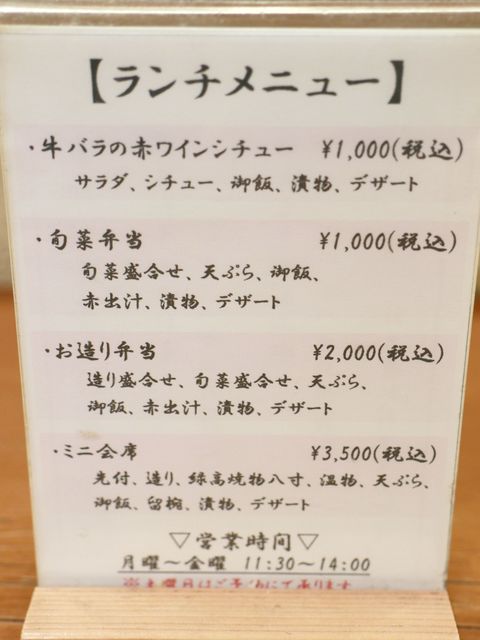 【ランチメニュー】
・牛バラの赤ワインシチュー ¥1,000(税込)
サラダ、シチュー、御飯、漬物、デザート
・旬菜弁当 ¥1,000(税込)
旬菜盛合せ、天ぷら、御飯、
赤出汁、漬物、デザート
・お造り弁当 ¥2,000(税込)
造り盛合せ、旬菜盛合せ、天ぷら、
御飯、赤出汁、漬物、デザート
・ミニ会席 ¥3,500(税込)
先付、造り、緑高焼物八寸、温物、天ぷら、
御飯、留椀、漬物、デザート
▽営業時間▽
月曜～金曜 11:30～14:00
※土曜日はご予約にて承ります